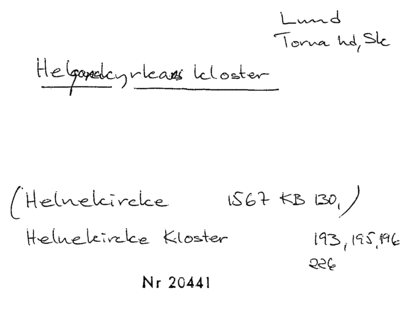 Lund
Torna hd, Sk
Helgeandskyrkans kloster
(Helnekircke 1567 KB 130,)
Helnekircke Kloster 193, 195, 196
226
Nr 20441